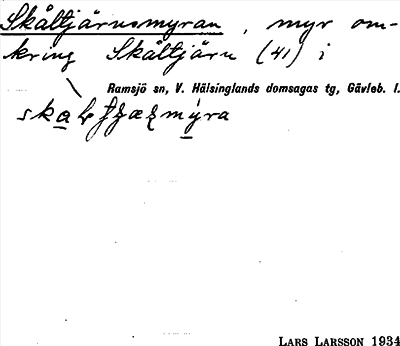 Skåltjärnsmyran, myr om-
kring Skåltjärn (41) i
Ramsjö sn, V. Hälsinglands domsagas tg, Gävleb. l.
LARS LARSSON 1934